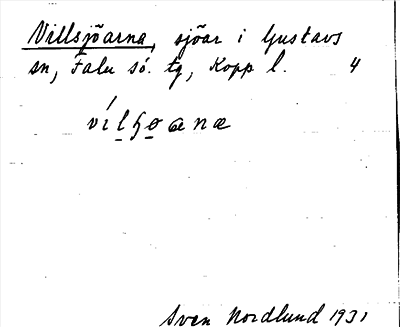 Villsjöarna, sjöar i Gustavs
sn, Falu sö. tg, Kopp l. 4
víl̲ɧo̲ana
Sven Nordlund 1931